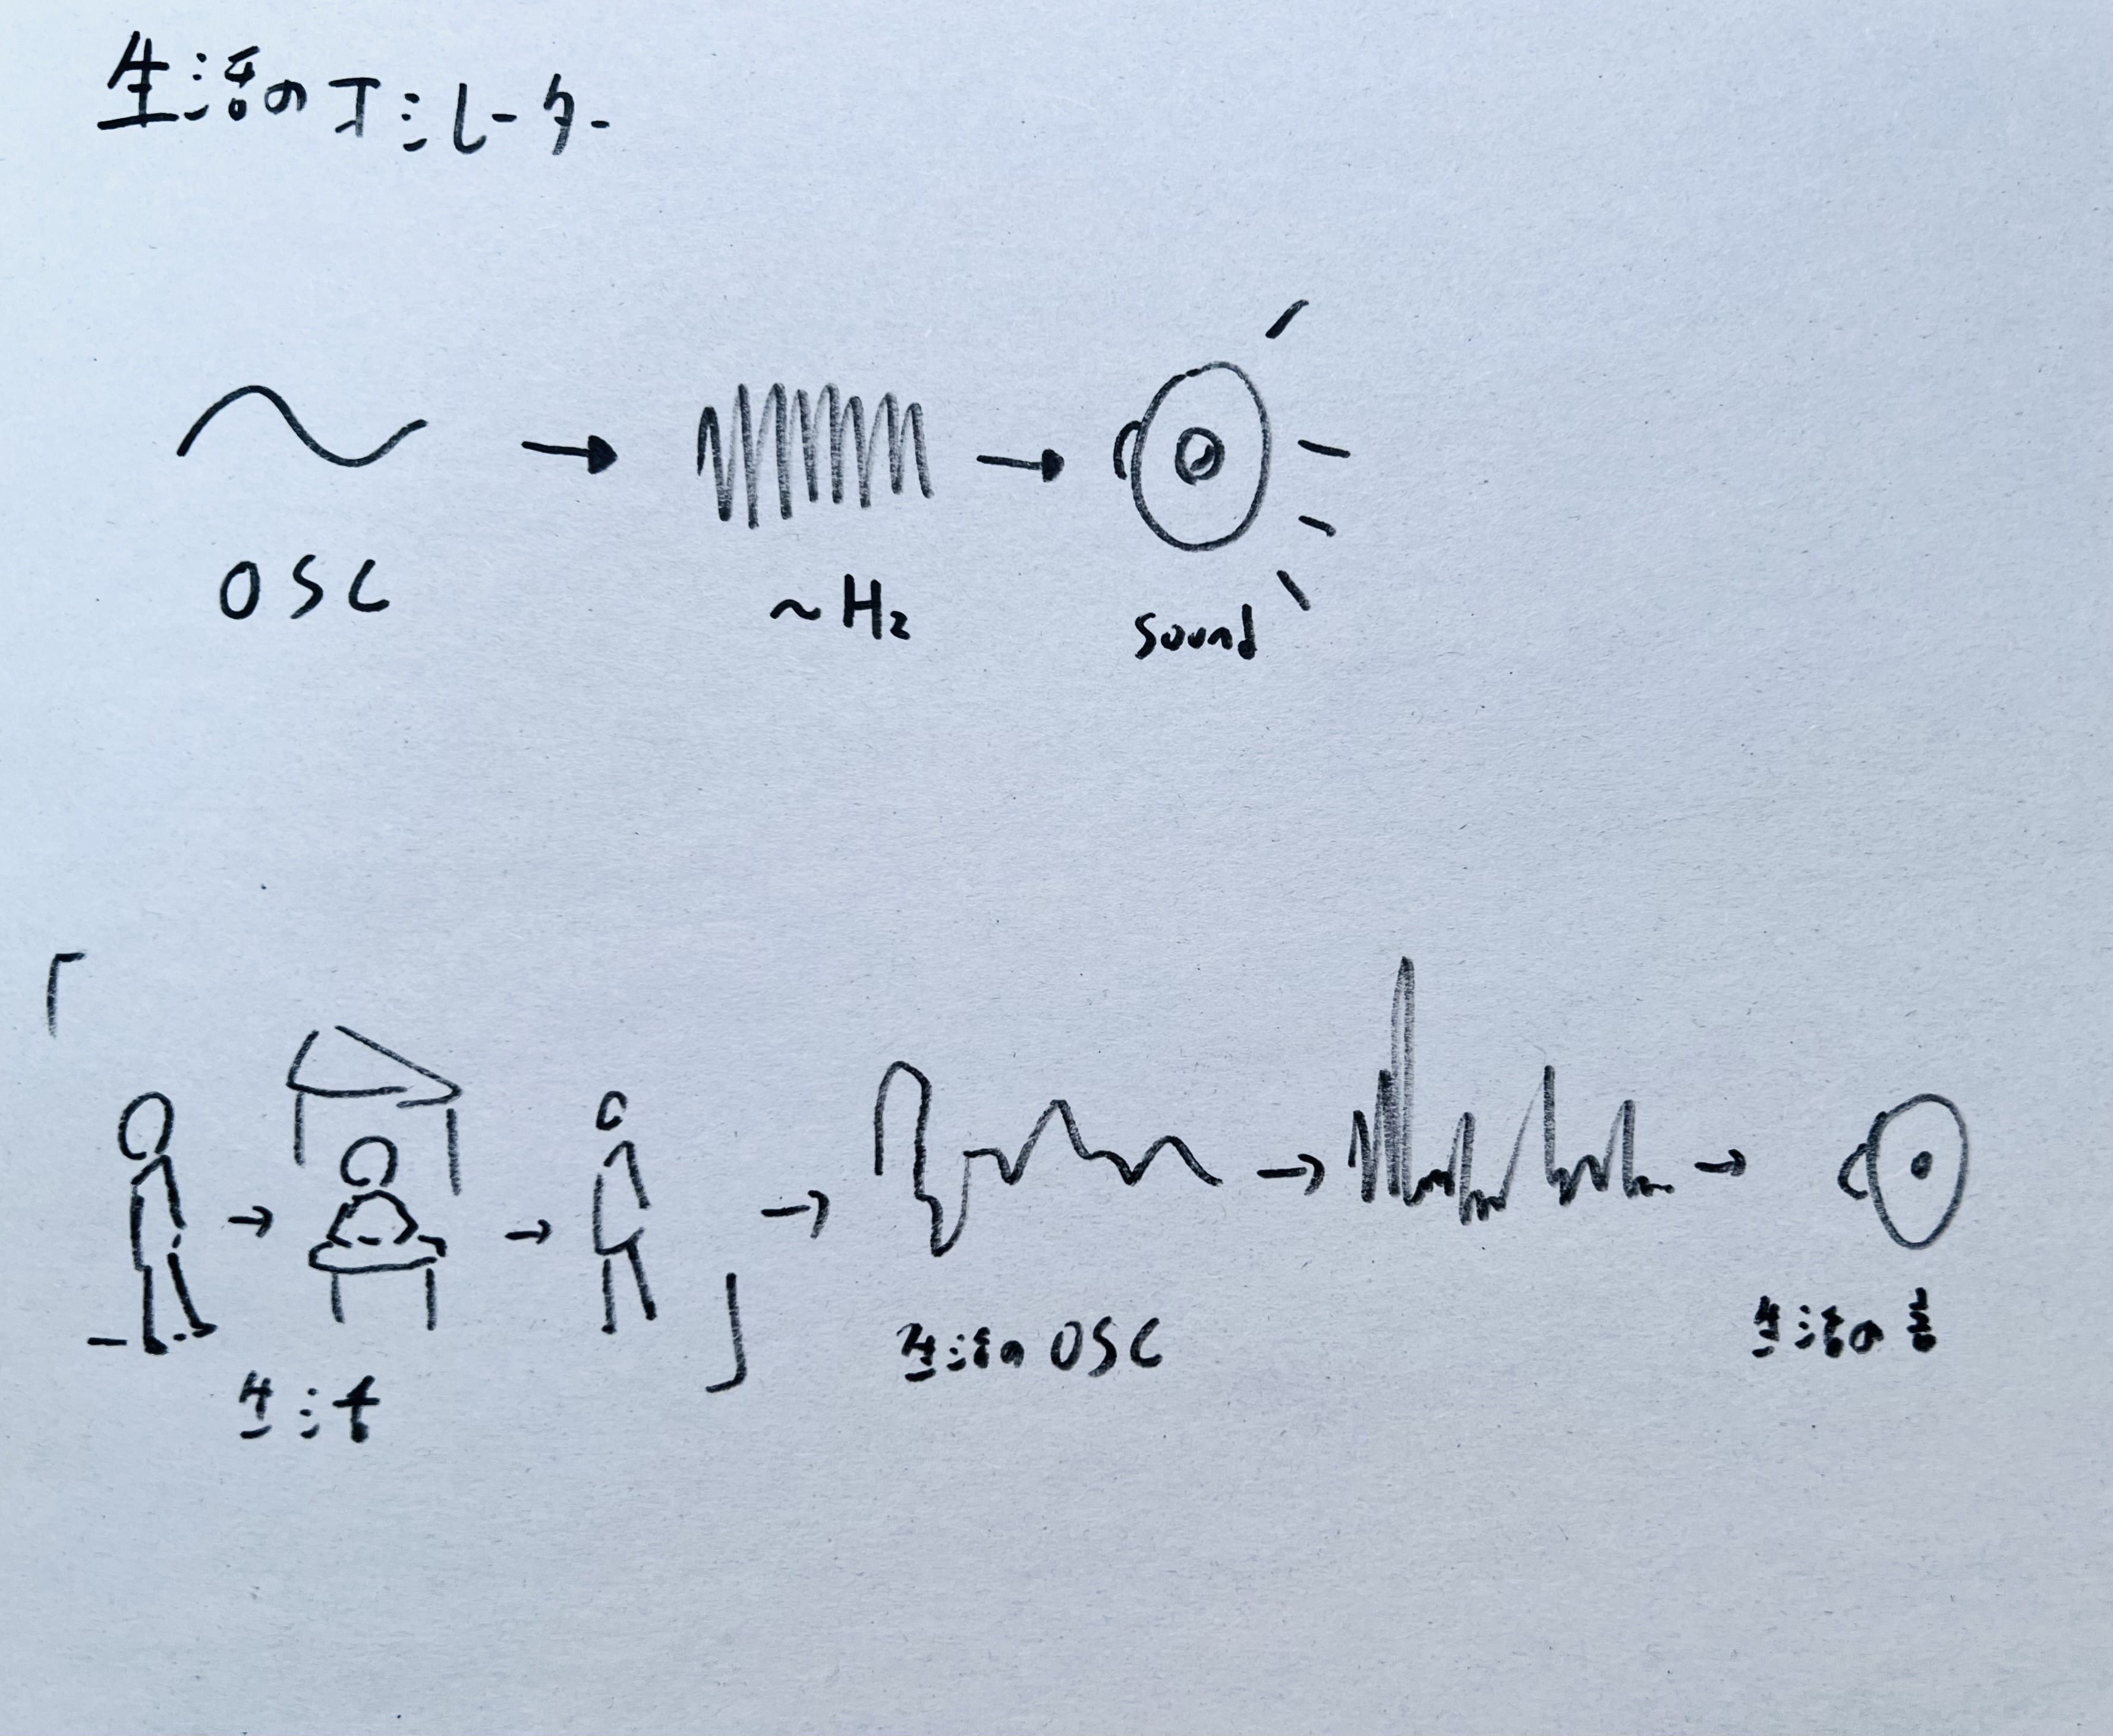 生活のオシレーター
OSC
~Hz
sound
「
」
生活
生活のOSC
生活の音